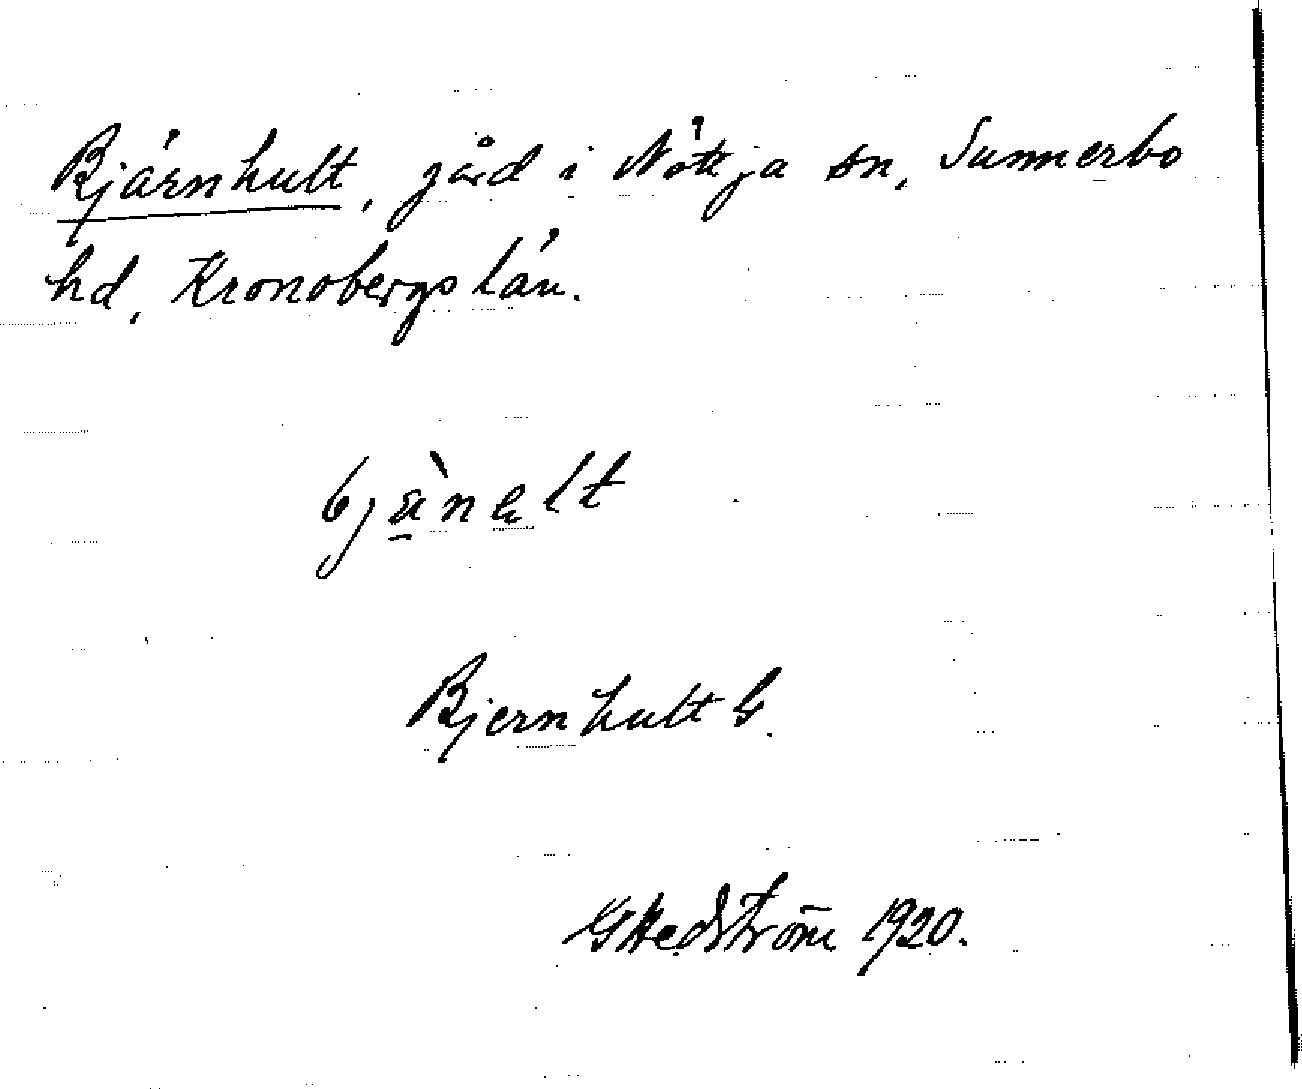 Bjärnhult, gård i Nöttja sn, Sunnerbo
hd, Kronobergs län.
Bjernhult G.
GHedström 1920.